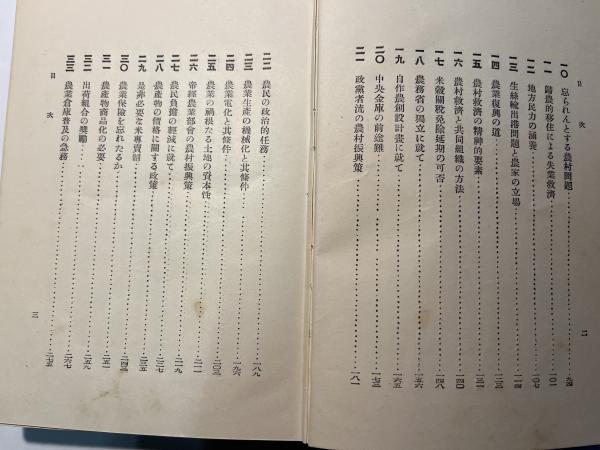 目次
一〇 忘られんとする農村問題………九四
一一 歸農的移住による失業救濟………一〇一
一二 地方民力の涵養………一〇七
一三 生絲輸出港問題と農家の立場………一一四
一四 農業復興の道………一二三
一五 農村救濟の精神的要素………一三一
一六 農村救濟と共同組織の方法………一四〇
一七 米穀關稅免除延期の可否………一四八
一八 農務省の獨立に就て………一五六
一九 自作農創設計畫に就て………一六五
二〇 中央金庫の前途難………一七三
二一 政黨者流の農村振興策………一八一
二
二二 農民の政治的任務………一八九
二三 農業生產の機械化と其條件………一九六
二四 農業電化と其條件………二〇三
二五 農業の禍根たる土地の資本性………二一一
二六 帝經農業部會の農村振興策
二七 農民負擔の輕減に就て………二一九
二八 農產物の價格に關する政策
二九 是非必要な米專賣制………二三五
三〇 農業保險を忘れたるか………二四三
三一 農產物商品化の必要………二五一
三二 出荷組合の奬勵………二五九
三三 農業倉庫普及の急務………二六七
目次
三
二七五